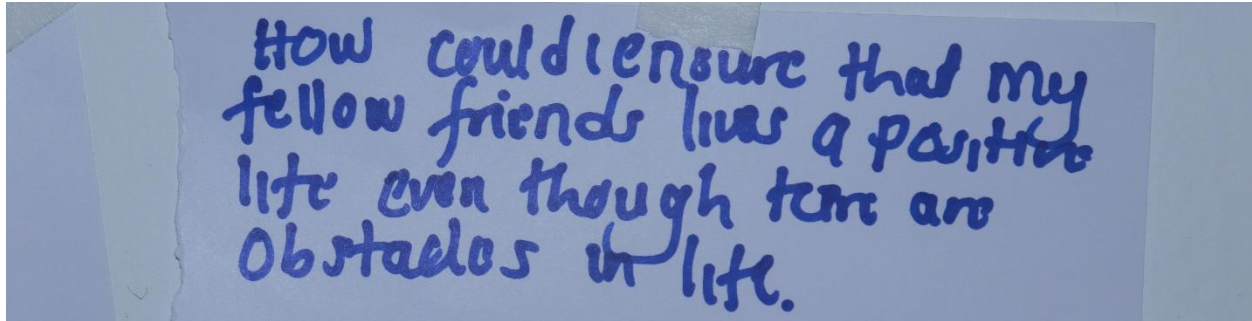 How could i ensure that my
fellow friends lives a positive
life even though tere are
obstacles in life.